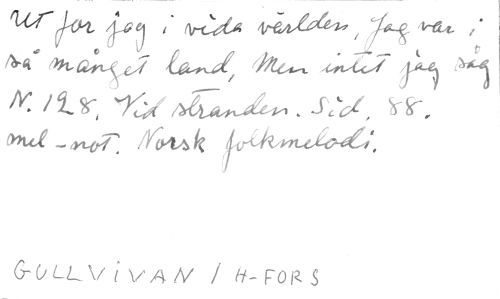 Ut for jag i vida världen, Jag var i
så månget land, Men intet jag såg
N. 128. Vid stranden. Sid. 88.
mel-not. Norsk folkmelodi.
GULLVIVAN / H-FORS